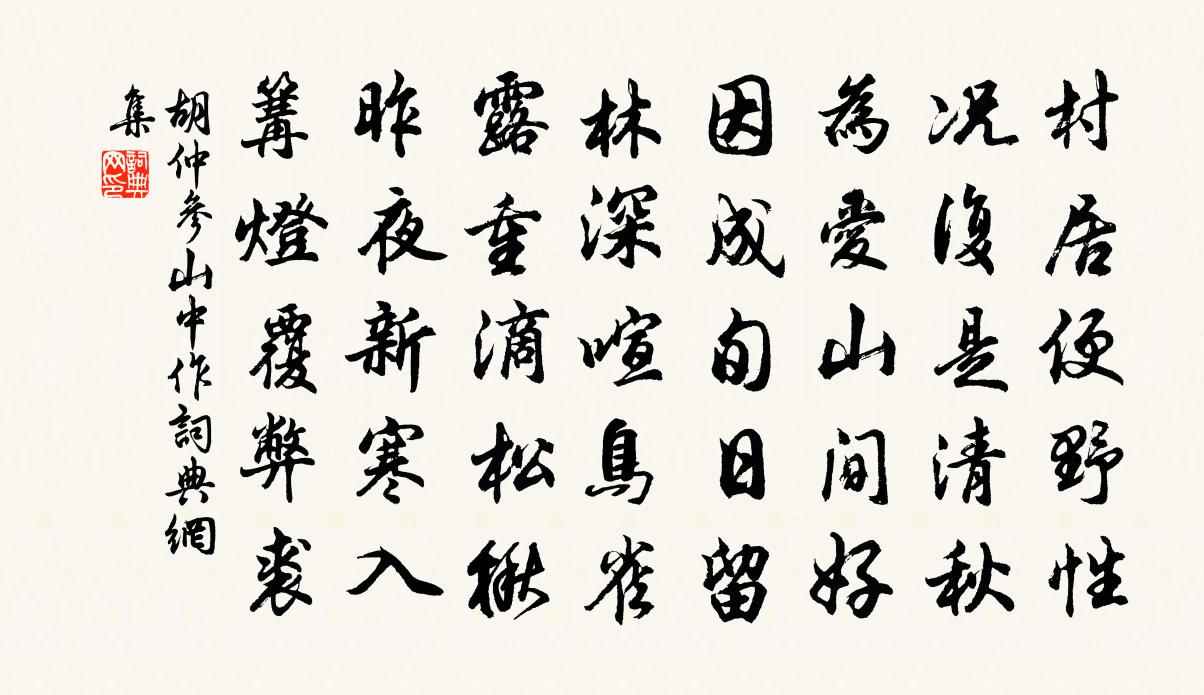 村居便野性
况復是清秋
為愛山間好
因成旬日留
林深喧鳥雀
露重滴松楸
昨夜新寒入
篝燈覆弊裘
胡仲參山中作詞典網
集
詞典網印